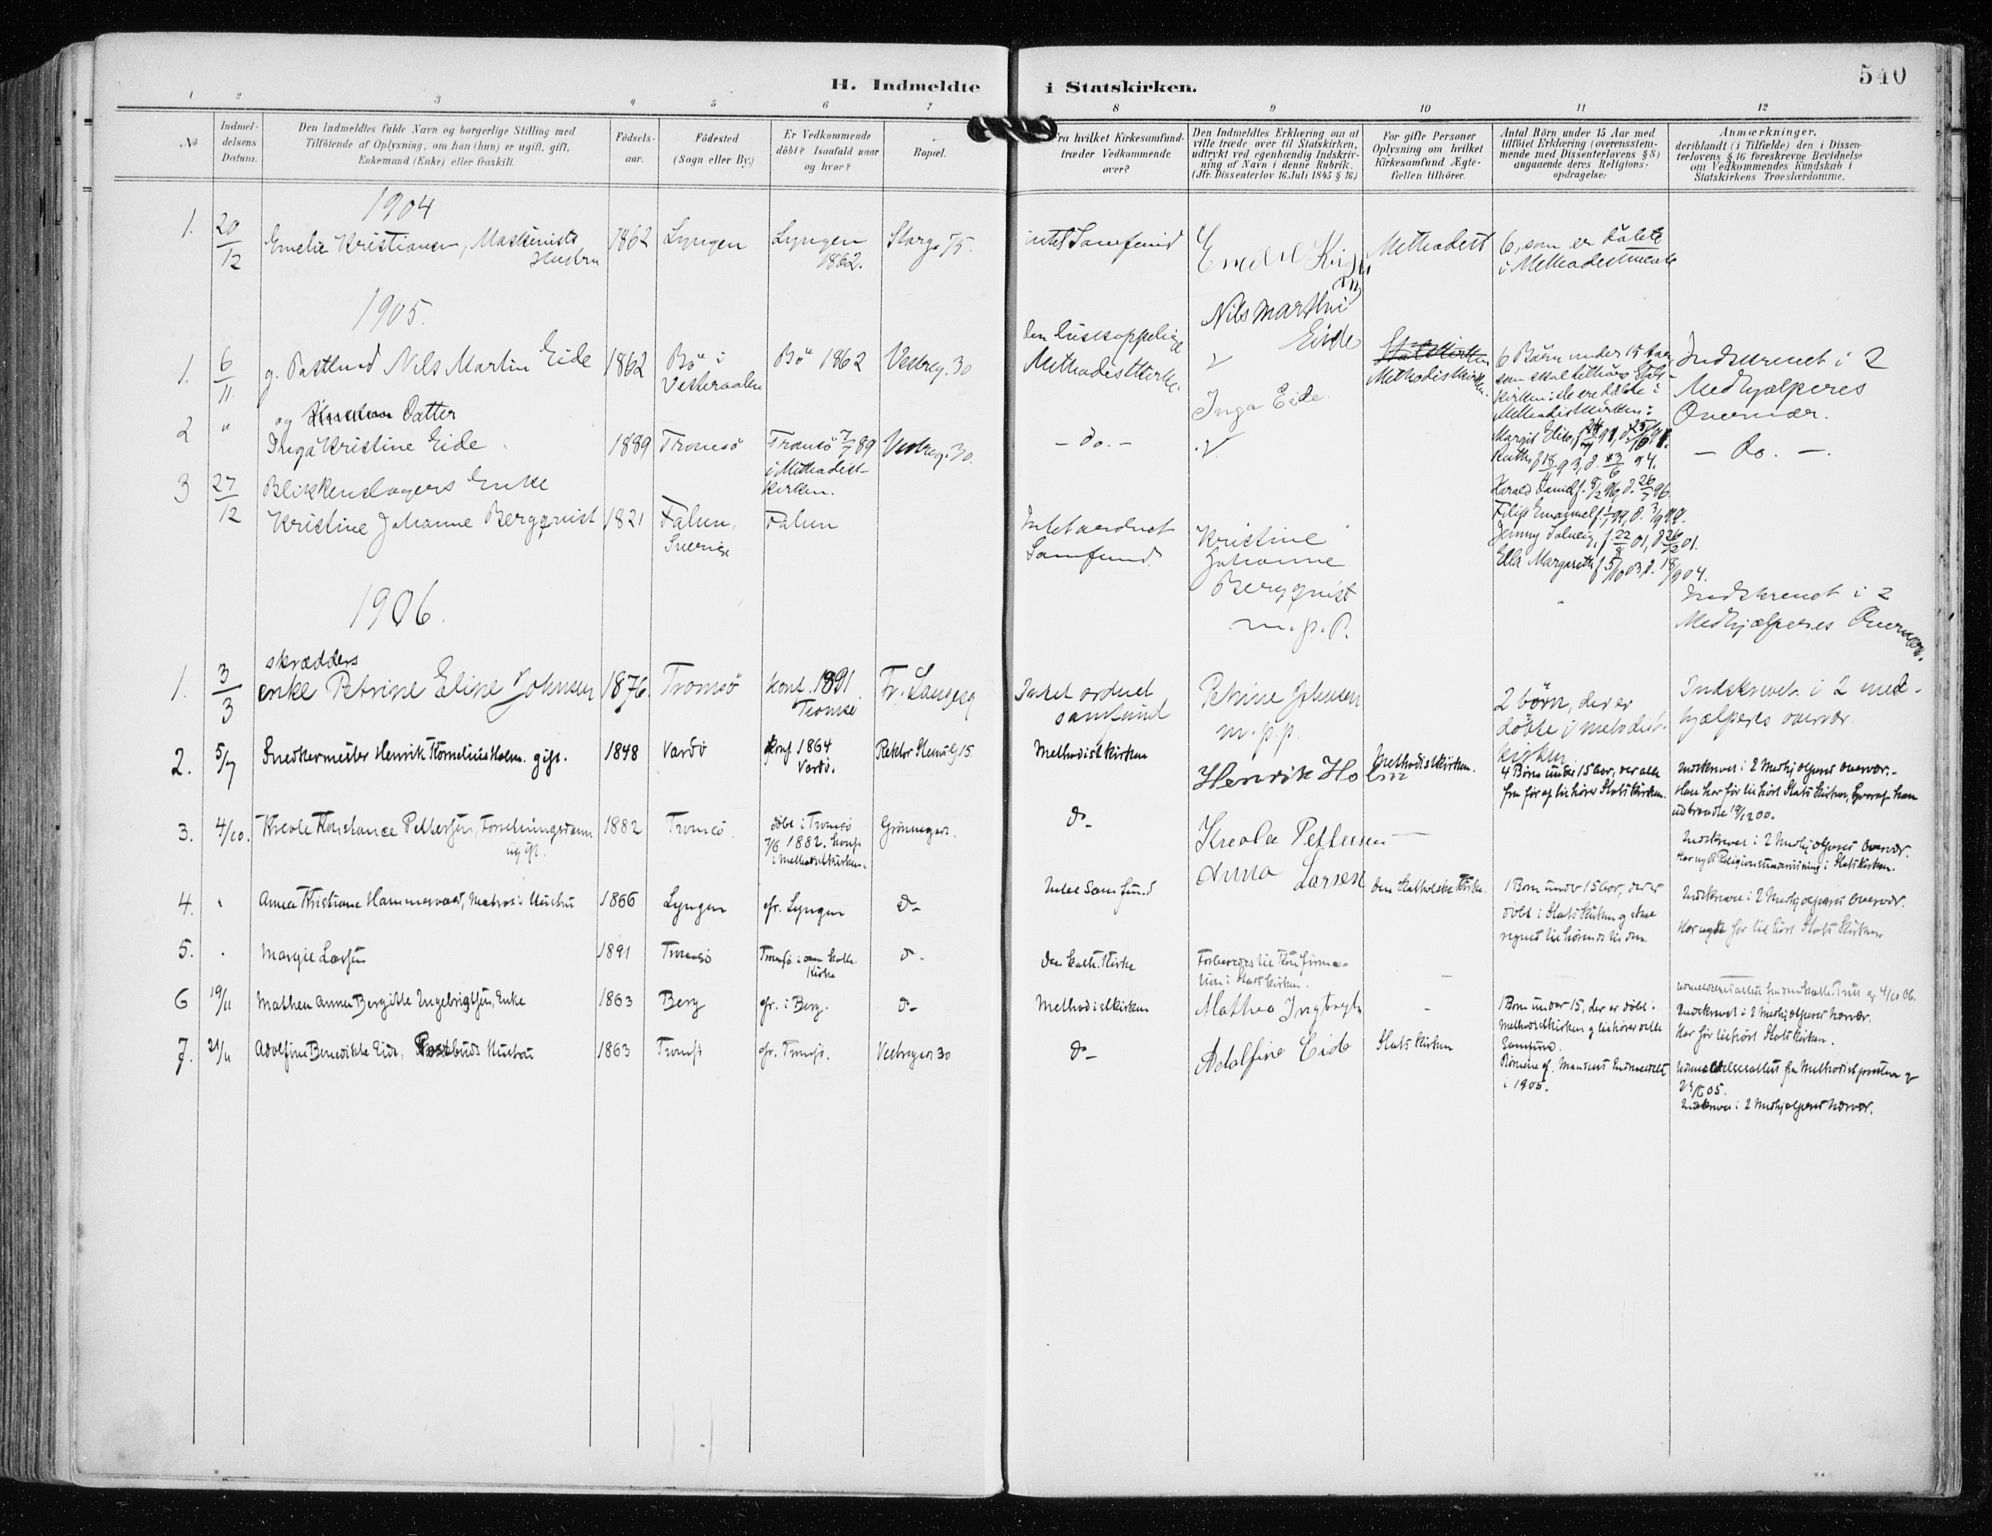 540
H. Indmeldte i Statskirken.
1 2 3 4 5 6 7 8 9 10 11 12
No
Indmel-
delsens
Datum.
Den Indmeldtes fulde Navn og borgerlige Stilling med
Tilföiende af Oplysning, om han (hun) er ugift, gift,
Enkemand (Enke) eller fraskilt.
Födsels-
aar.
Födested
(Sogn eller By.)
Er Vedkommende
döbt? Isaafald naar
og hvor?
Bopæl.
Fra hvilket Kirkesamfund
træder Vedkommende
over?
Den Indmeldtes Erklæring om at
ville træde over til Statskirken,
udtrykt ved egenhændig Indskriv-
ning af Navn i denne Rubrik.
(Jfr. Dissenterlov 16. Juli 1845 § 16.)
For gifte Personer
Oplysning om hvilket
Kirkesamfund Ægte-
fællen tilhörer.
Antal Börn under 15 Aar med
tilföiet Erklæring (overensstem-
mende med Dissenterlovens § 8)
angaaende deres Religions-
opdragelse.
Anmærkninger,
deriblandt (i Tilfælde) den i Dissen-
terlovens § 16 foreskrevne Bevidnelse
om Vedkommendes Kundskab i
Statskirkens Troeslærdomme.
1904
1. 20/12 Emelie Kristiansen, Maskinists Hustru 1862 Lyngen Lyngen 1862. Storg. 75. intet Samfund Methodist 6, som er døbte
i Methodistmenh
1905.
1. 6/11 g. Postbud Nils Martin Eide 1862 Bö i Vesteraalen Bö 1862 Vestreg. 30 Den biskoppelige Methodistkirke. Nils Martini Eide Methodistkirken.
6 Børn under 15 Aar,
som skal tilhøre Stats-
kirken; de ere døbte i
Methodistkirken:
Indskrevet i 2
Medhjælperes
Overvær.
2 " og Datter
Inga Kristine Eide 1889 Tromsö Tromsö 7/7 89 i Methodist-
kirken. Vestreg. 30. - do. - Inga Eide. - Do. -.
Harald Daniel
Filip Emanuel
Jenny Solveig, f. 22/8 01, d. 26/12 01.
Ella Margareth f 5/10 03, d. 18/ 904.
3 27/12 Blikkenslagers Enke
Kristine Johanne Bergqvist 1821 Falun, Sverige Falun Intet ordnet
Samfund. Kristine
Johanne
Bergqvist
m. p. P.
Indskrevet i 2
Medhjælperes Overvær.
1906.
1. 3/3 skrædders
enke Petrine Eline Johnsen 1876. Tromsö konf. 1891 Tromsø Fr. Langesg Intet ordnet
samfund Petrine Johnsen
m. p. p.
2 børn, der er
døbte i metodist-
kirken
Indskrevet i 2 med-
hjælperes overvær.
2. 5/7 Snedkermester Henrik Kornelius Holm. gift. 1848 Vardö Konf 1864
Vardö. Rektor Steensg 15 Methodistkirken Henrik Holm Methodistkirken.
4 Børn under 15 Aar, der alle
fra før af tilhører Statskirken.
Indskrevet i 2 Medhjælperes Overvær.-
Han har før tilhört Statskirken, hvoraf han
udtraadte
3. 4/10. Kreole Konstance Pettersen, Forretningsdame
ugift. 1882 Tromsö. döbt i Tromsö
7/6 1882. Konf.
i Methodistkirken. Grönnegd. Do- Kreola Pettersen —
Indskrevet i 2 Medhjælperes Overvær.
Har nydt Religionsundervisning i Statskirken.
4. " Anna Kristiane Hammervold, Matros's Hustru 1866 Lyngen do. Lyngen Do- Intet Samfund Anna Larsen den katholske Kirke.
1 Barn under 15 Aar, der er
døbt i Statskirken
Indskrevet i 2 Medhjælperes Overvær.
Har ogsaa før tilhört Statskirken
5. " Margit Larsen 1891 Tromsö Tromsö i den kath.
Kirke Do- Den kath. Kirke Forberedes til Konfirma-
tion i Statskirken. -
6 19/11 Mathea Anna Bergitte Ingebrigtsen, Enke 1863 Berg do. i Berg. Do- Methodistkirken Mathea Ingbrigts -
1 Barn under 15, der er döbt i
Methodistkirken og tilhører dette
Samfund.
Indskrevet i 2 Medhjælperes Nærvær.
Har før tilhört Statskirken.
7. 21/11 Adolfine Benedikte Eide, Postbuds Hustru 1863 Tromsö do. Tromsö. Vestregd 30 Do- Adolfine Eide Statskirken
Børnene cf. Mandens Indmeldelse
i 1905.
Udmeldelsesattest fra Methodistpresten
Indskrevet i 2 Medhjælperes Nærvær.